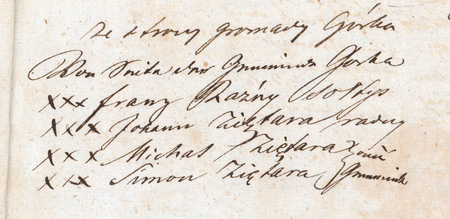 ze strony gromady Górka
Von Seite der Gmeinde Gorka
xxx franz Raźny sołtys
xxx Johann Ziętara radny
xxx Michał Ziętara
xxx Simon Ziętara